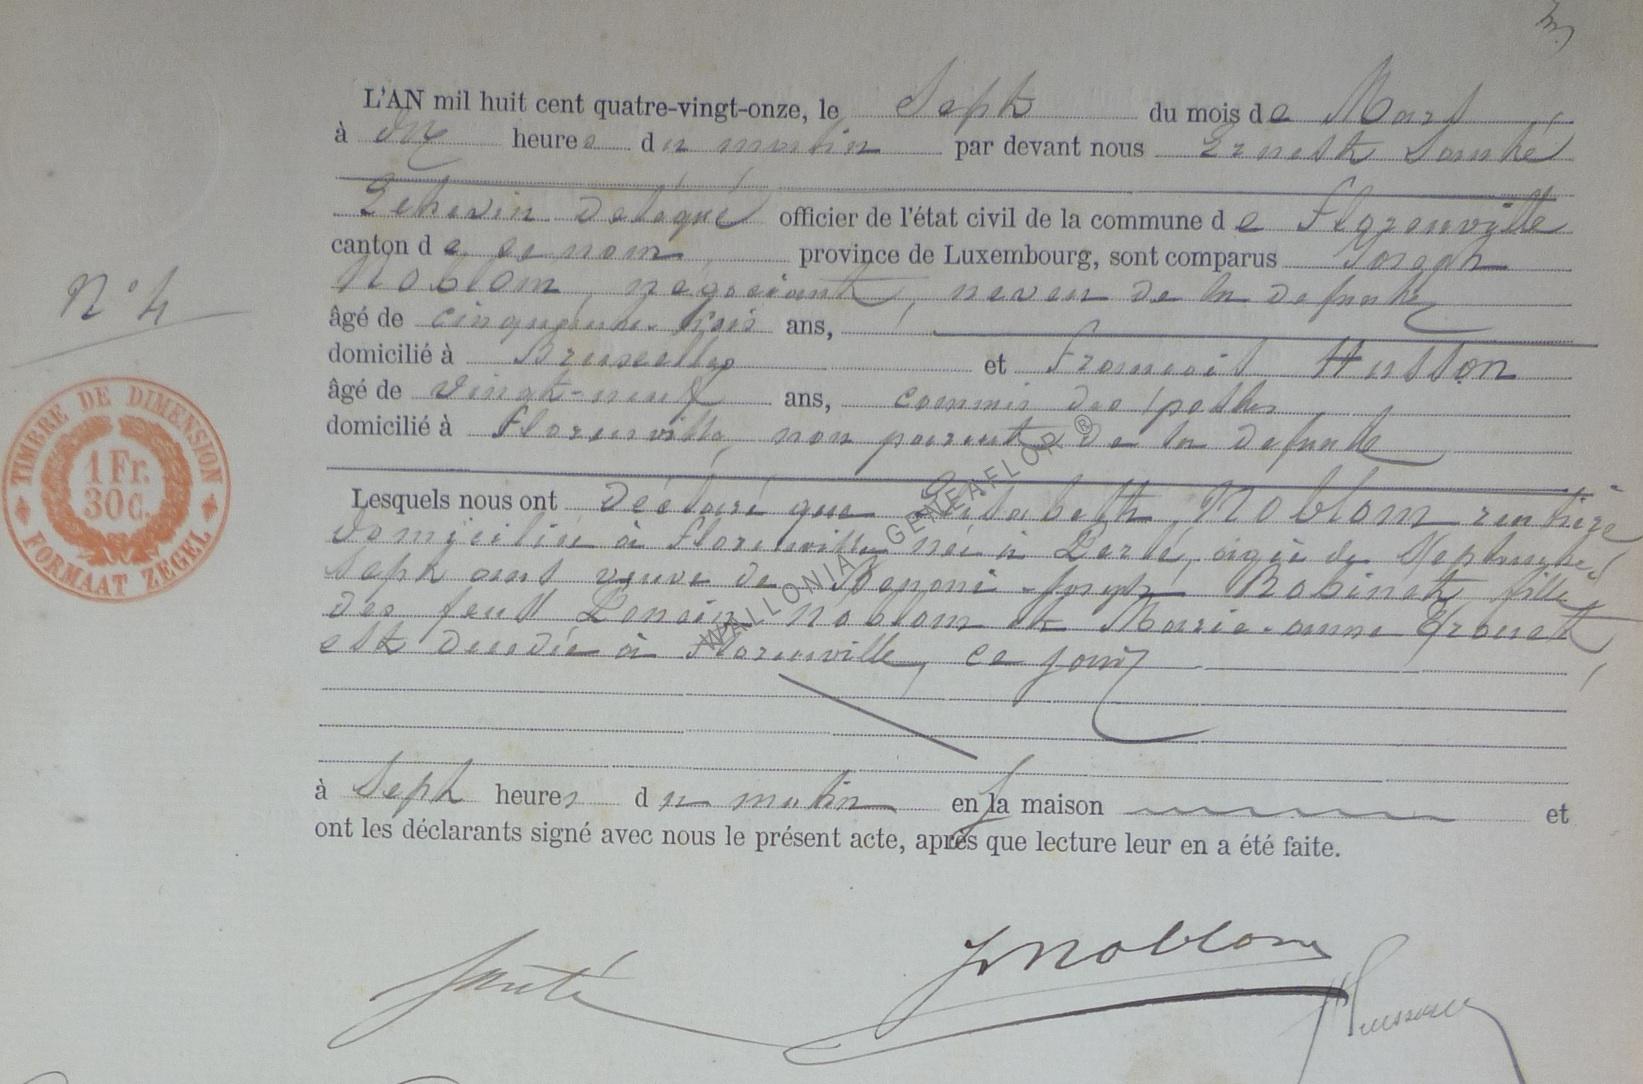 L'AN mil huit cent quatre-vingt-onze, le Sept du mois de Mars
à dix heures du matin par devant nous Ernest Santé
Echevin délégué officier de l'état civil de la commune de Florenville
canton de ce nom province de Luxembourg, sont comparus Joseph
Noblom, négociant, neveu de la defunte
âgé de cinquante-trois ans,
domicilié à Bruxelles et François Husson
âgé de vingt-neuf ans, commis des postes
domicilié à Florenville, non parent de la defunte
N° 4
TIMBRE DE DIMENSION
1 Fr.
30 C.
FORMAAT ZEGEL
Lesquels nous ont déclaré que Elisabeth Noblom rentière
domiciliée à Florenville née à Perlé, agée de septante
sept ans veuve de Joseph Robinet fille
des feus Noblom et Marie-anne
est décédée à Florenville, ce jour
WALLONIA GENEAFLOR ®
à Sept heures du matin en sa maison et
ont les déclarants signé avec nous le présent acte, après que lecture leur en a été faite.
Santé JNoblom
Husson